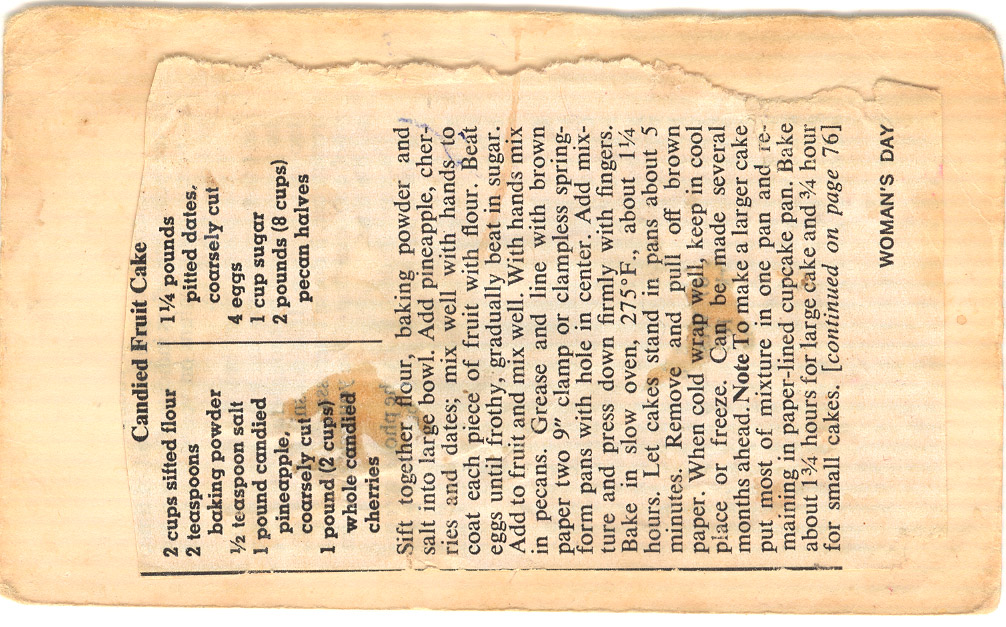 Candied Fruit Cake
2 cups sifted flour
2 teaspoons
baking powder
½ teaspoon salt
1 pound candied
pineapple,
coarsely cut
1 pound (2 cups)
whole candied
cherries
1¼ pounds
pitted dates,
coarsely cut
4 eggs
1 cup sugar
2 pounds (8 cups)
pecan halves
Sift together flour, baking powder and
salt into large bowl. Add pineapple, cher-
ries and dates; mix well with hands to
coat each piece of fruit with flour. Beat
eggs until frothy, gradually beat in sugar.
Add to fruit and mix well. With hands mix
in pecans. Grease and line with brown
paper two 9" clamp or clampless spring-
form pans with hole in center. Add mix-
ture and press down firmly with fingers.
Bake in slow oven, 275°F., about 1¼
hours. Let cakes stand in pans about 5
minutes. Remove and pull off brown
paper. When cold wrap well, keep in cool
place or freeze. Can be made several
months ahead. Note To make a larger cake
put most of mixture in one pan and re-
maining in paper-lined cupcake pan. Bake
about 1¾ hours for large cake and ¾ hour
for small cakes. [continued on page 76]
WOMAN'S DAY